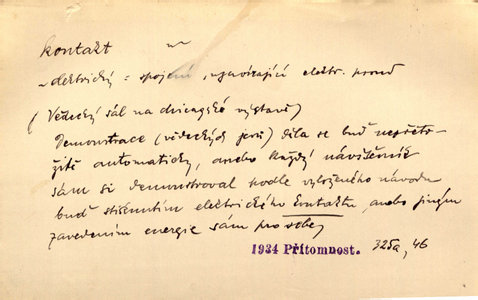 kontakt
~ elektrický = spojení, uzavírající elektr. proud
(Vědecký sál na chicagské výstavě)
Demonstrace (vědeckých jevů) děla se buď nepřetr-
žitě automaticky, anebo každý návštěvník
sám si demonstroval podle vyloženého návodu
buď stisknutím elektrického kontaktu anebo jiným
zavedením energie sám pro sebe
1934 Přítomnost. 325a, 46